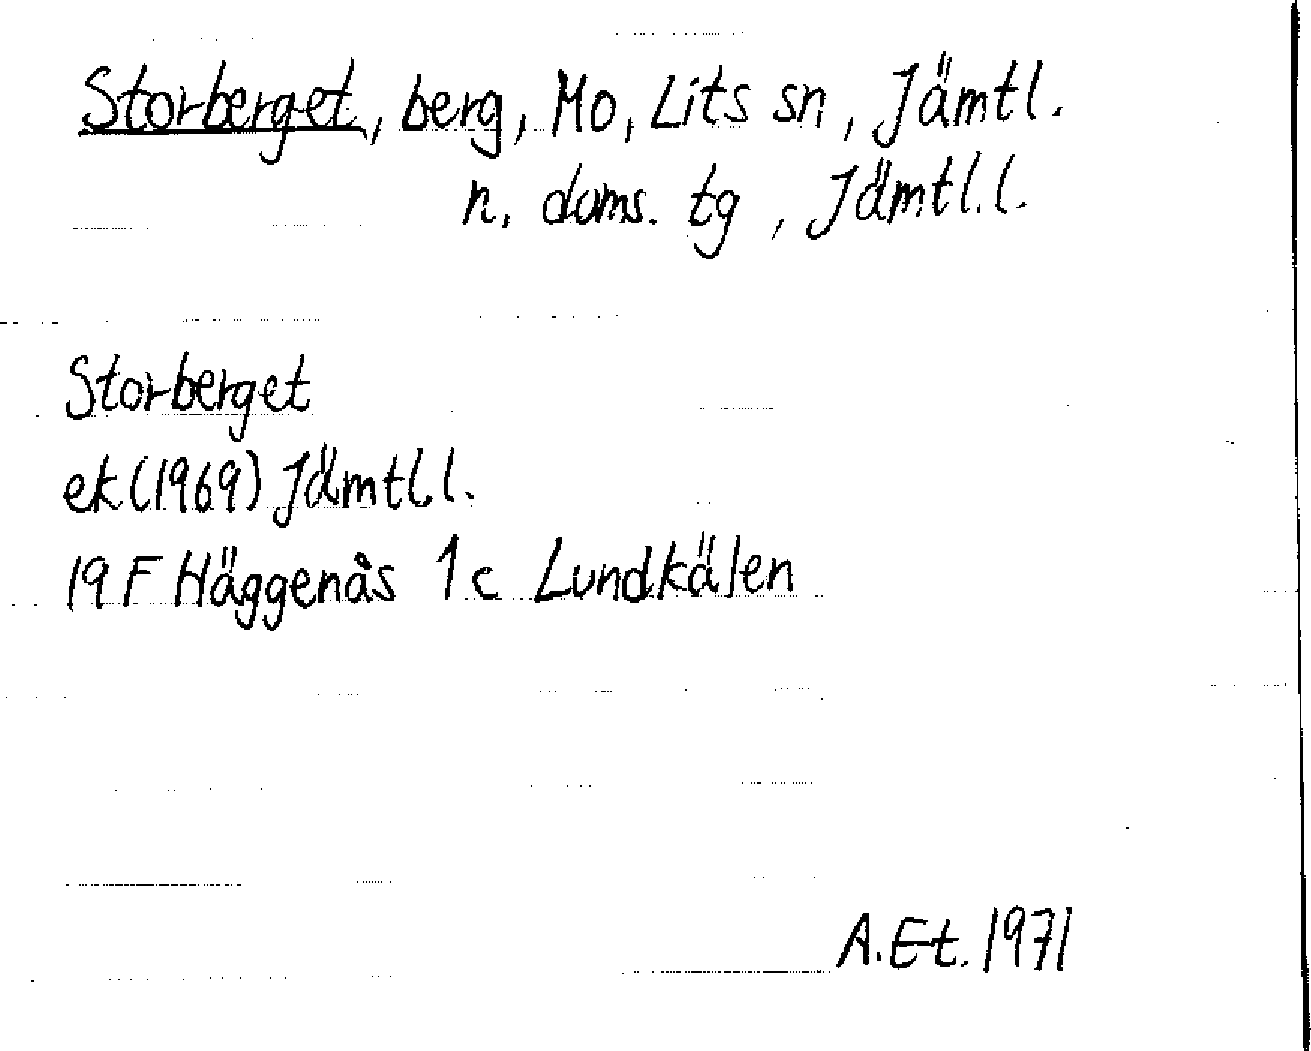 Storberget, berg, Mo, Lits sn, Jämtl.
n. doms. tg, Jämtl.l.
Storberget
ek (1969) Jämtl.l.
19 F Häggenås 1c Lundkälen
A.Et. 1971